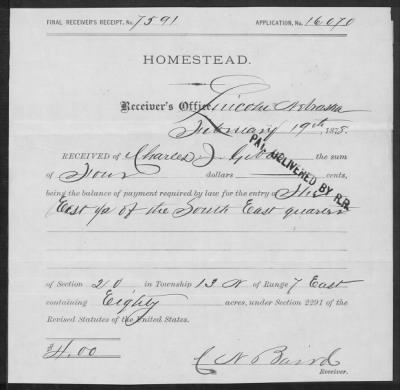 FINAL RECEIVER'S RECEIPT, No. 7591 APPLICATION, No. 16.070
HOMESTEAD.
Receiver's Office, Lincoln Nebraska
February 19th, 1875.
RECEIVED of Charles the sum
of Four dollars cents,
being the balance of payment required by law for the entry of The
East ½ of the South East quarter
PAT. DELIVERED BY R.R.
of Section 20 in Township 13 N of Range 7 East
containing Eighty acres, under Section 2291 of the
Revised Statutes of the United States.
$4.00
C N Baird
Receiver.